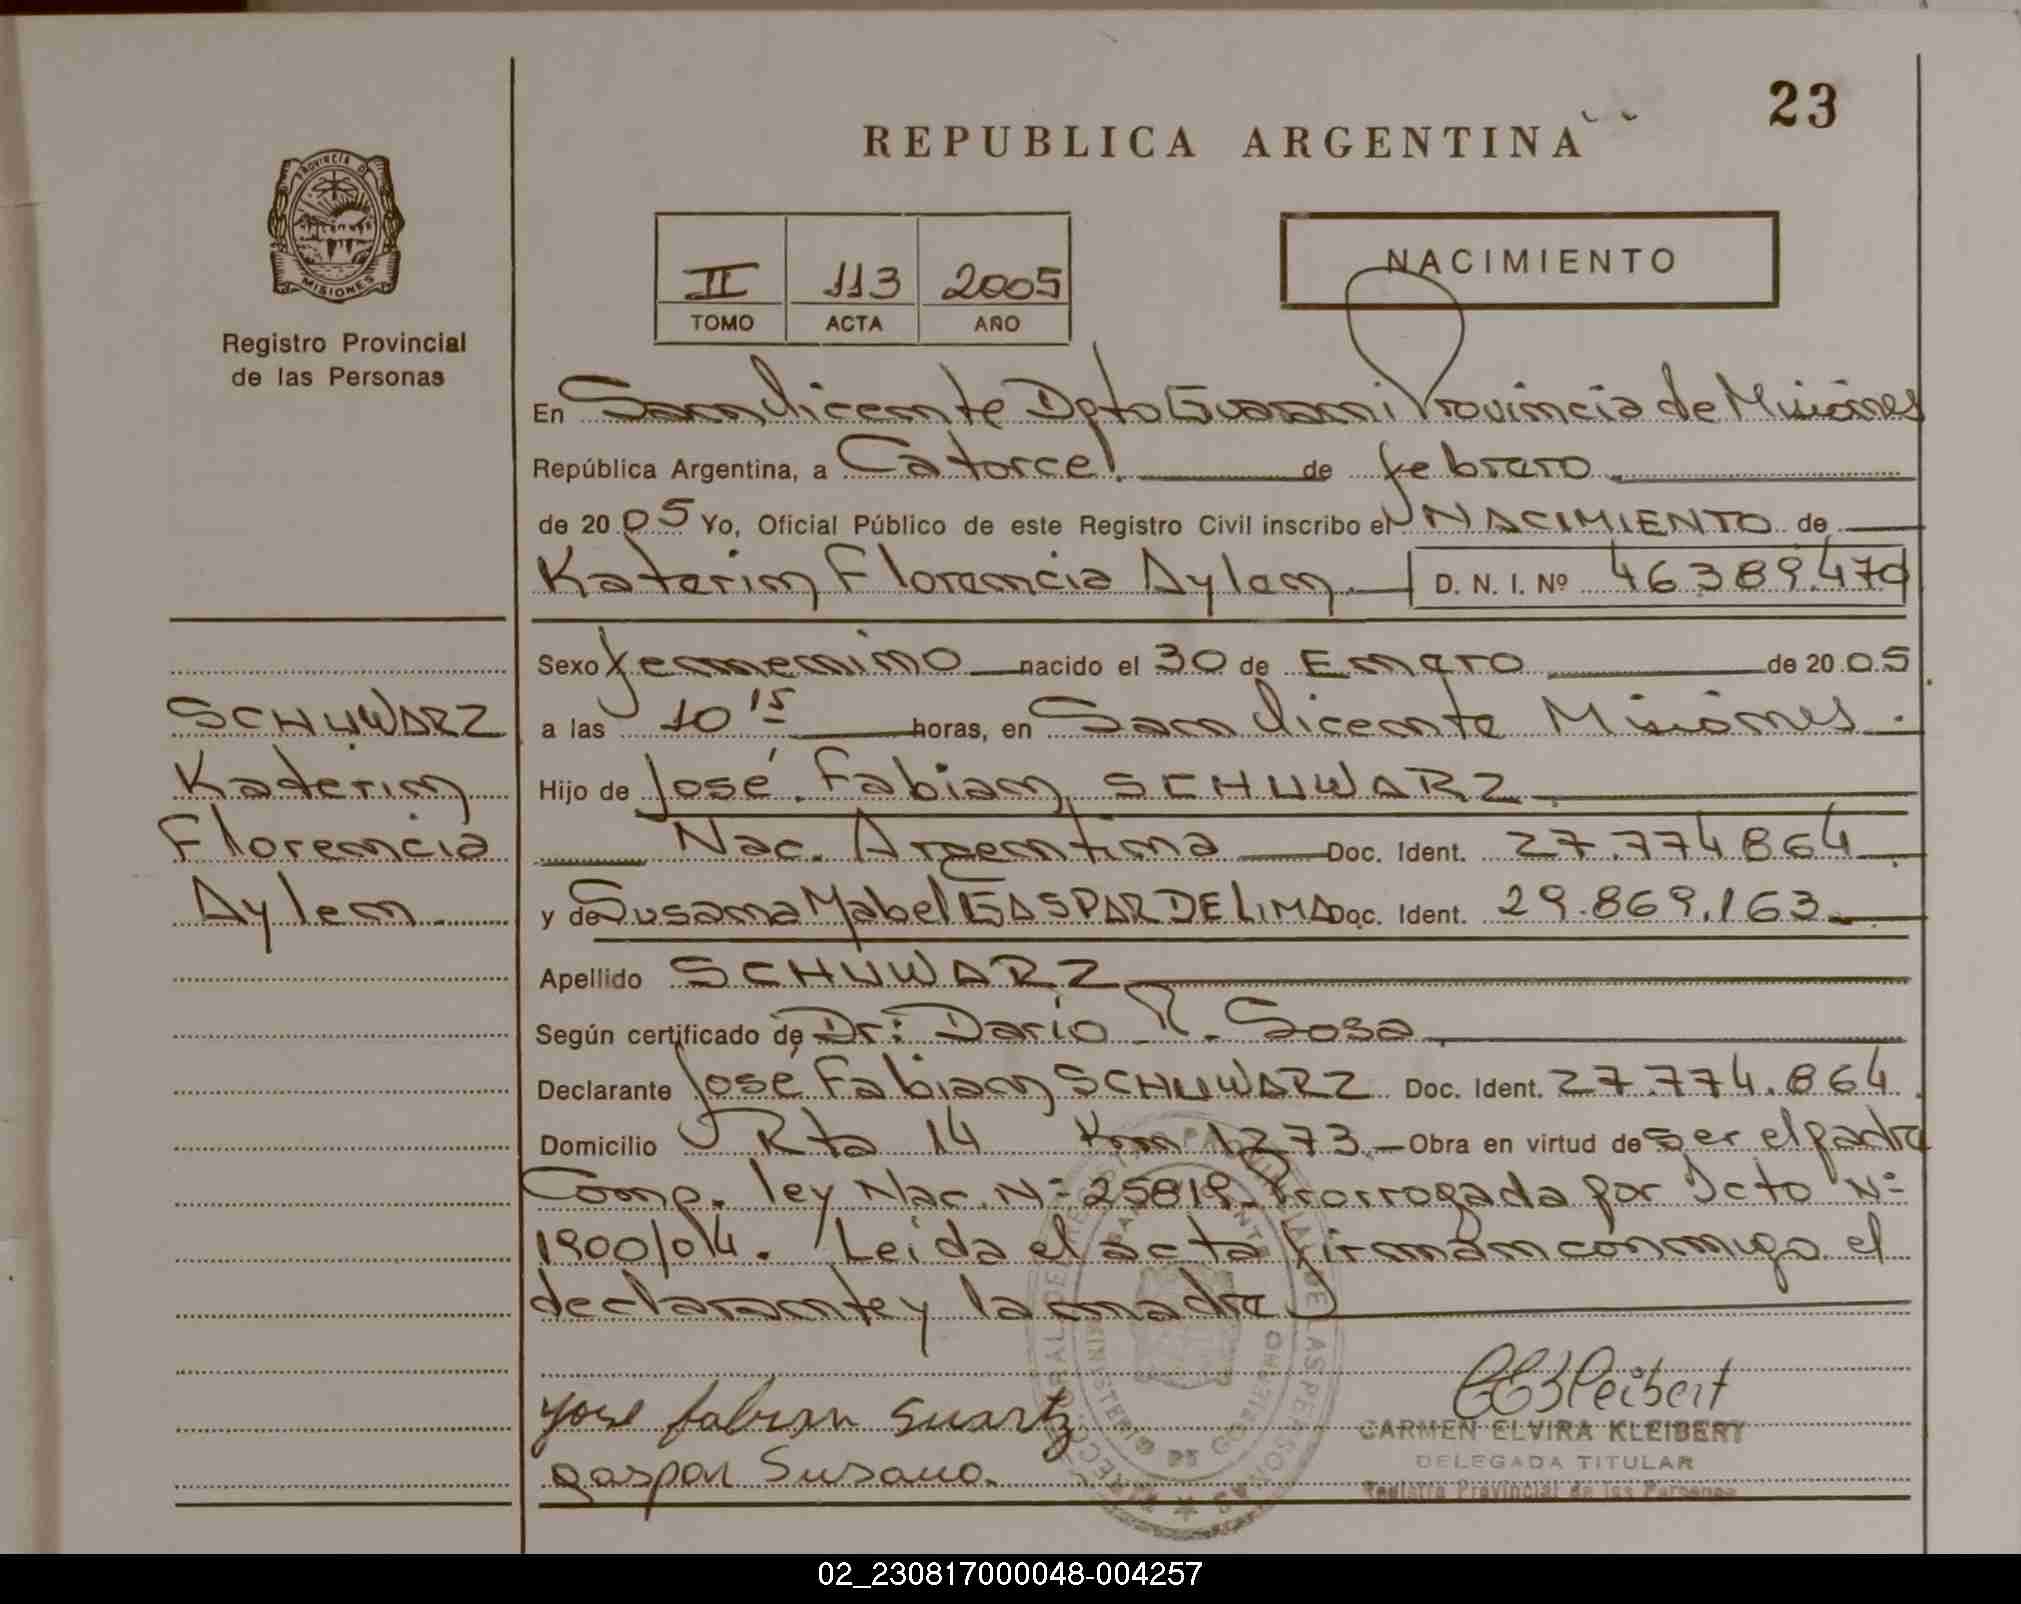 23
REPUBLICA ARGENTINA
PROVINCIA D
MISIONES
Registro Provincial
de las Personas
II 113 2005
TOMO ACTA AÑO
NACIMIENTO
En San Vicente Dpto Guarani Provincia de Misiones
República Argentina, a Catorce de febrero
de 2005 Yo, Oficial Público de este Registro Civil inscribo el NACIMIENTO de
Katerin Florencia Aylen D. N. I. Nº 46.389.470
Sexo femenino nacido el 30 de Enero de 2005
a las 10 15 horas, en San Vicente Misiones.
Hijo de José Fabian SCHUWARZ
Nac. Argentina Doc. Ident. 27.774.864
y de Susana Mabel GASPAR DE LIMA Doc. Ident. 29.869.163
Apellido SCHUWARZ
Según certificado de Dr: Darío R. Sosa
Declarante José Fabian SCHUWARZ Doc. Ident. 27.774.864.
Domicilio Rta 14 Km 1273.- Obra en virtud de ser el padre
Comp. ley Nac. Nº 25819 Prorrogada por Dcto Nº
1900/04. Leida el acta firman conmigo el
declarante y la madre
SCHUWARZ
Katerin
Florencia
Aylen
Yose fabian Suartz
gaspar Susana.
CEKleibert
CARMEN ELVIRA KLEIBERT
DELEGADA TITULAR
Registro Provincial de las Personas
02_230817000048-004257